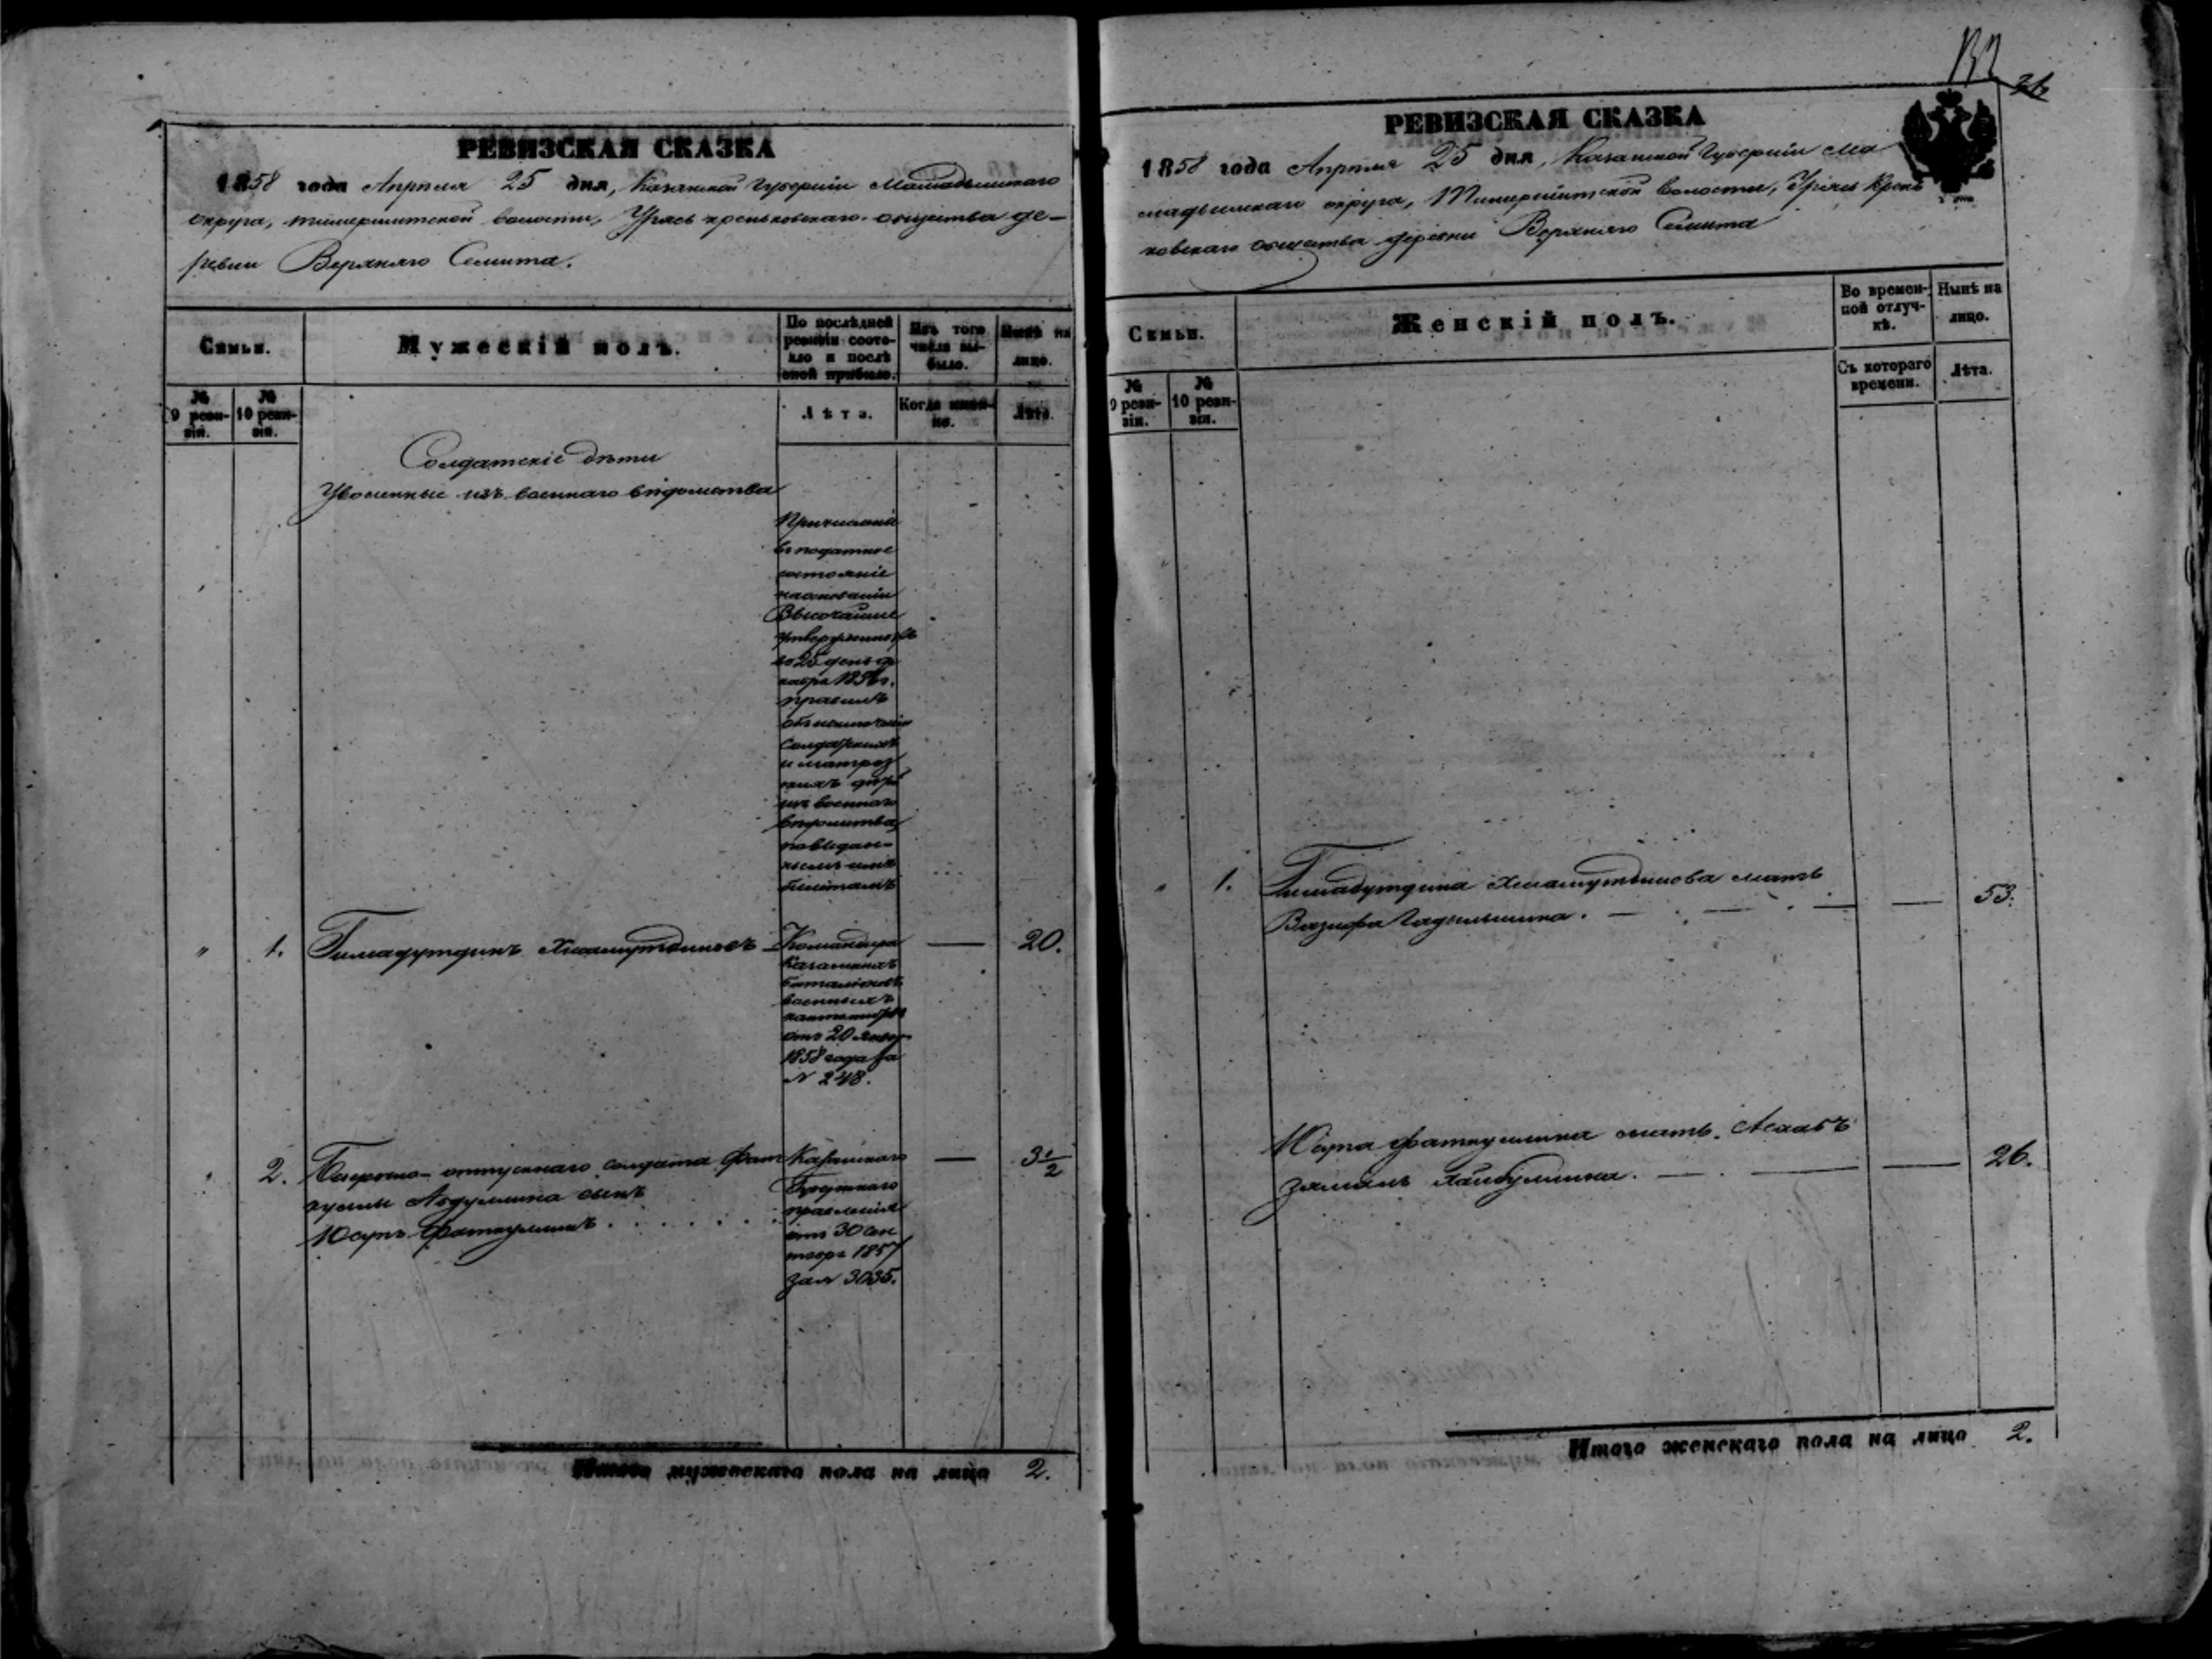 РЕВИЗСКАЯ СКАЗКА
1858 года Апреля 25 дня, Казанской Губернии Мамадышскаго
округа, волости, Урясь общества де-
ревни Верхняго Семита.
Семьи.
Мужескій полъ.
По послѣдней
ревизіи состо-
яло и послѣ
оной прибыло.
Изъ того
числа вы-
было.
Нынѣ на
лицо.
№
9 реви-
зіи.
№
10 реви-
зіи.
Лѣта.
Когда имен-
но.
Лѣта.
Солдатскіе дѣти
Уволенные изъ военнаго вѣдомства
въ податное
состояніе
на основаніи
Высочайше
утвержденныхъ
въ 25 день де
кабря 1856 г.
правилъ
объ исключеніи
Солдатскихъ
и матроз
скихъ дѣтей
изъ военнаго
вѣдомства,
по выдан-
нымъ имъ
билетамъ
" 1. Гимадутдинъ — 20.
Командира
Казанскихъ
баталіоновъ
военныхъ
кантонистовъ
отъ 20 Января
1858 года за
№ 248.
" 2. отпускнаго солдата Фат Казанскаго — 3 1/2
куллы Абдуллина сынъ
Юсупъ Фаткуллинъ . . . . . .
правленія
отъ 30 Сен
тября 1857
за № 3035.
Итого мужескаго пола на лицо 2.
РЕВИЗСКАЯ СКАЗКА
1858 года Апреля 25 дня, Казанской Губерніи Ма
мадышскаго округа, волости, Урясь
ковскаго общества деревни Верхняго Семита
Семьи.
Женскій полъ.
Во времен-
ной отлуч-
кѣ.
Нынѣ на
лицо.
№
9 реви-
зіи.
№
10 реви-
зіи.
Съ котораго
времени.
Лѣта.
" 1. Гимадутдина мать
Вазифа — 53.
Юсупа Фаткуллина мать
Хайбуллина. — 26.
Итого женскаго пола на лицо 2.